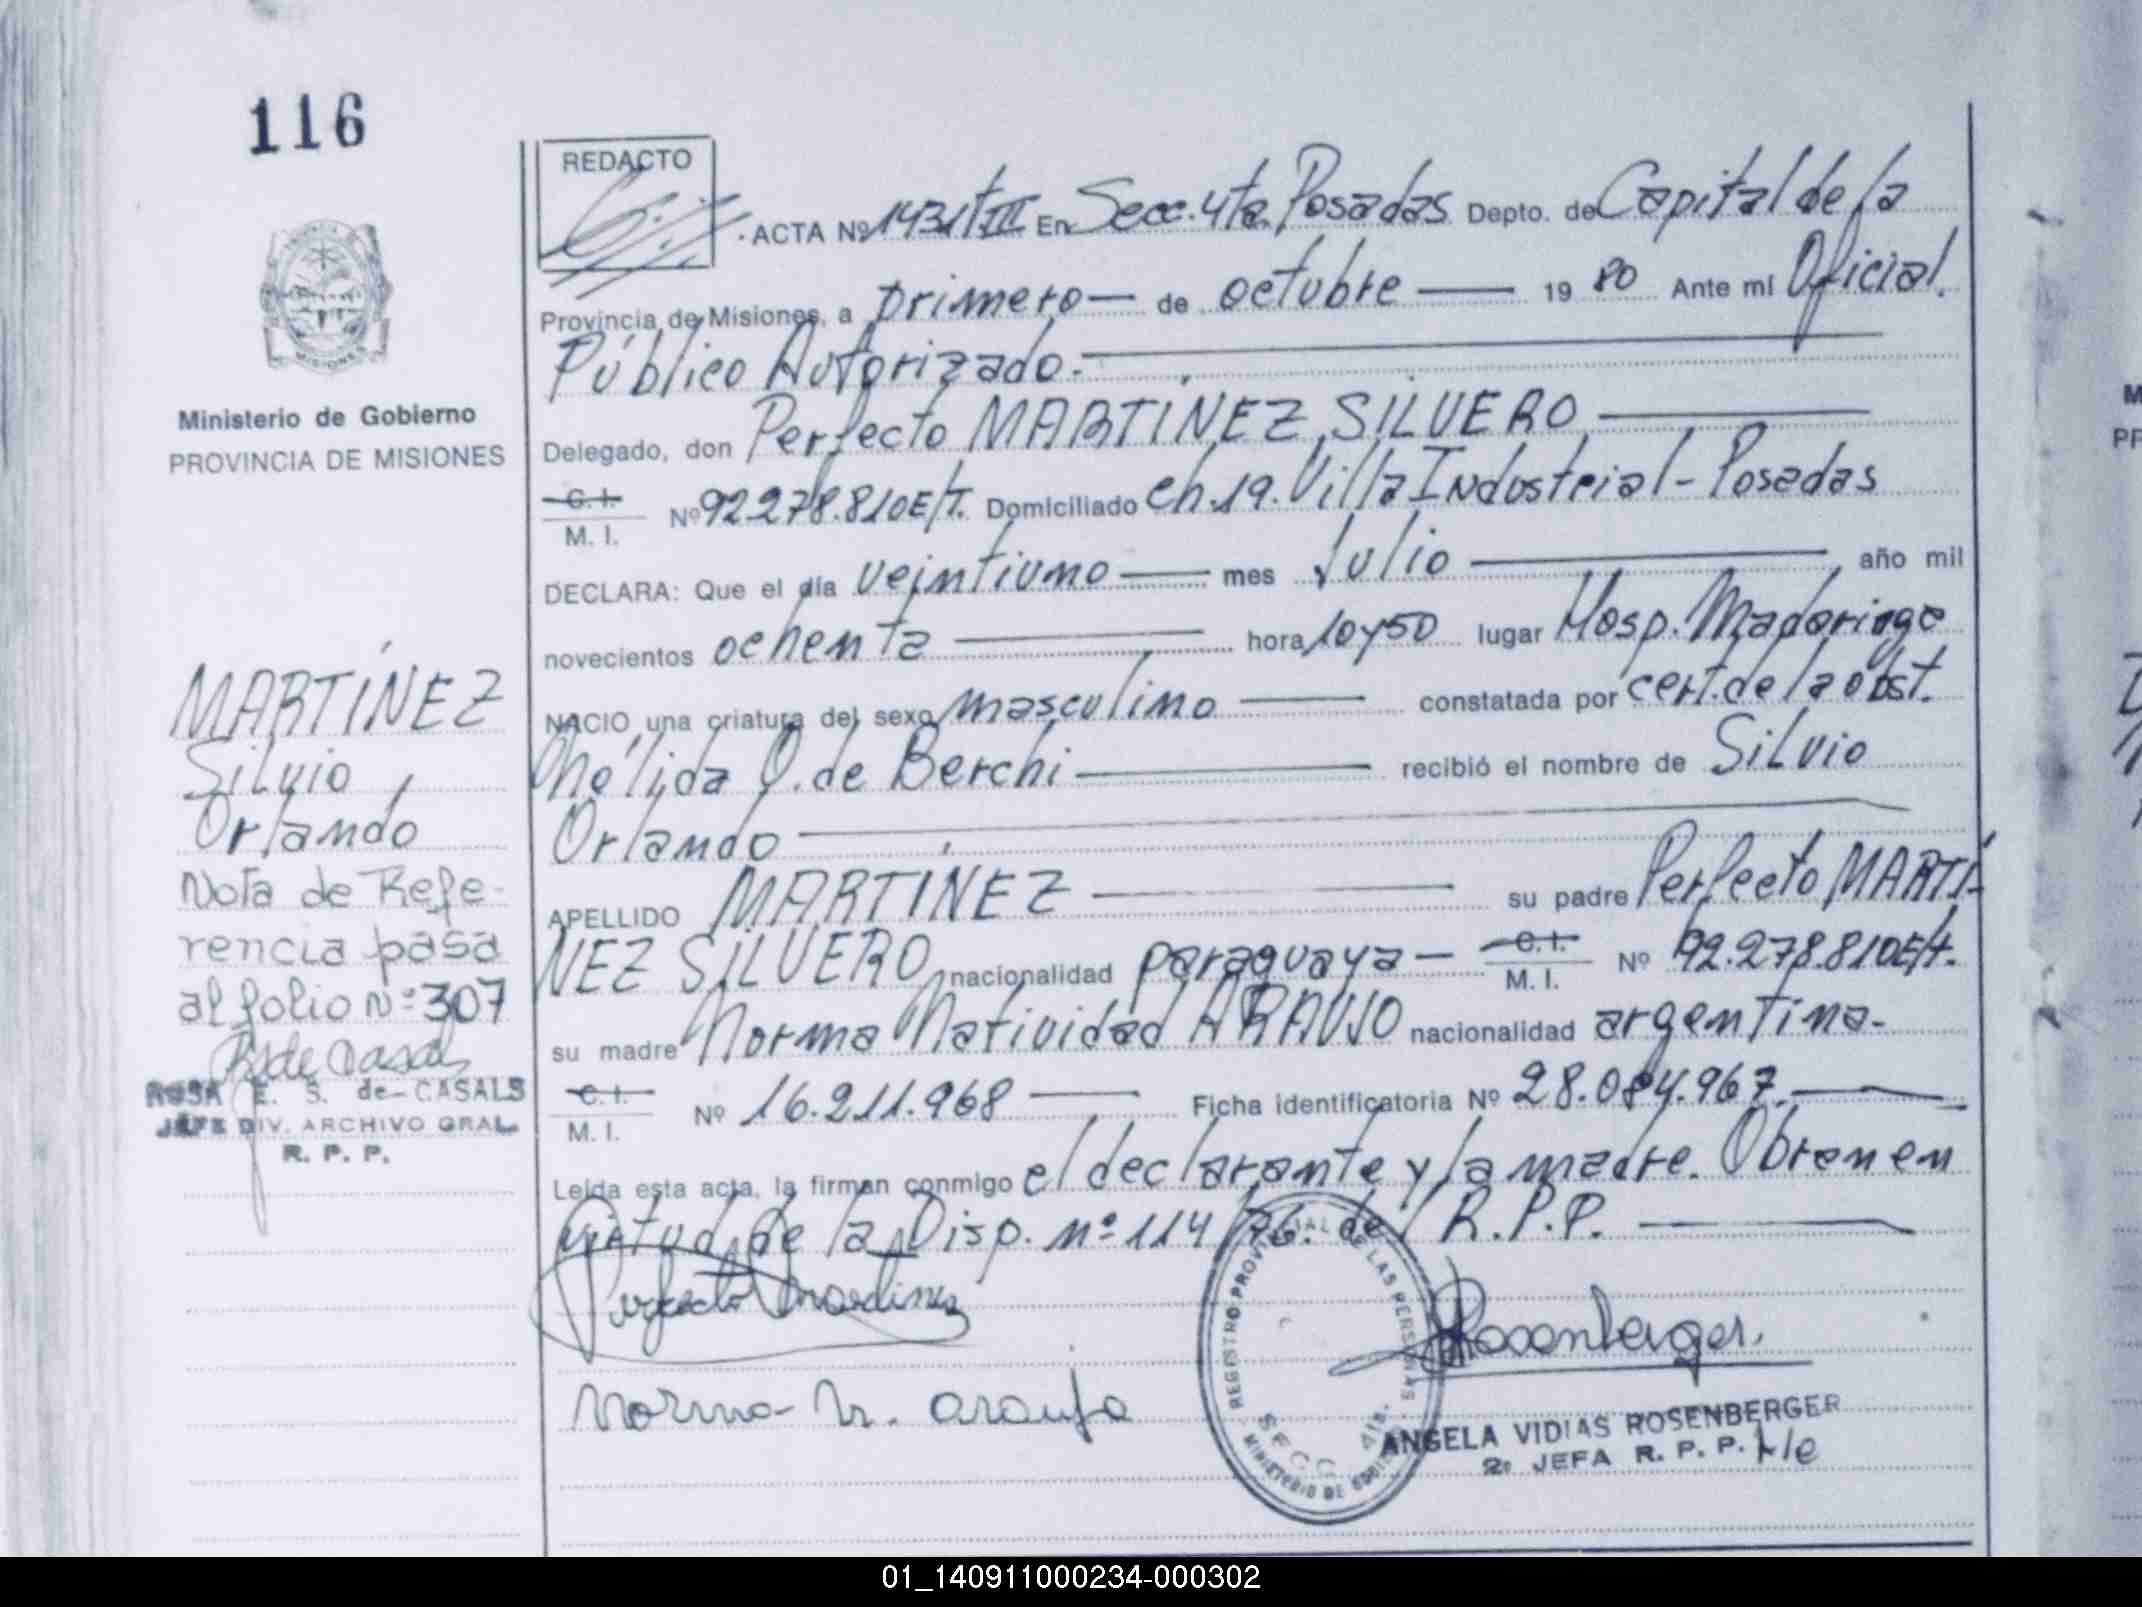 116
REDACTO
ACTA Nº 1431/TIII En Secc. 4ta. Posadas Depto. de Capital de la
Provincia de Misiones, a primero — de octubre — 19 80 Ante mí Oficial.
Público Autorizado.
Delegado, don Perfecto MARTÍNEZ SILVERO
C. I. M. I. Nº 92.278.810E/T. Domiciliado Ch. 19. Villa Industrial - Posadas
DECLARA: Que el día veintiuno — mes Julio — año mil
novecientos ochenta — hora 10y50 lugar Hosp. Madariaga
NACIO una criatura del sexo masculino — constatada por cert. de la obst.
Nélida O. de Berchi — recibió el nombre de Silvio
Orlando
APELLIDO MARTÍNEZ — su padre Perfecto MARTÍ-
NEZ SILVERO, nacionalidad paraguaya — C. I. M. I. Nº 92.278.810E/T.
su madre Norma Natividad ARAUJO nacionalidad argentina-
C. I. M. I. Nº 16.211.968 — Ficha identificatoria Nº 28.084.967.
Leída esta acta, la firman conmigo el declarante y la madre. Obren en
virtud de la Disp. nº 114/76. del R.P.P.
Perfecto Martinez
Rosenberger.
Norma N. Araujo
ANGELA VIDIAS ROSENBERGER
2º JEFA R. P. P.
REGISTRO PROVINCIAL DE LAS PERSONAS
MINISTERIO DE GOBIERNO
SECC. 4ta.
MISIONES
Ministerio de Gobierno
PROVINCIA DE MISIONES
MARTÍNEZ
Silvio
Orlando
Nota de Refe-
rencia pasa
al folio Nº 307
R S de Casals
ROSA E. S. de CASALS
JEFE DIV. ARCHIVO GRAL.
R. P. P.
01_140911000234-000302